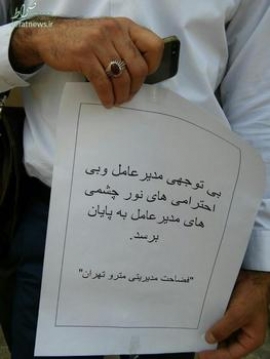 بی توجهی مدیرعامل وبی
احترامی های نور چشمی
های مدیرعامل به پایان
برسد.
"فضاحت مدیریتی مترو تهران"